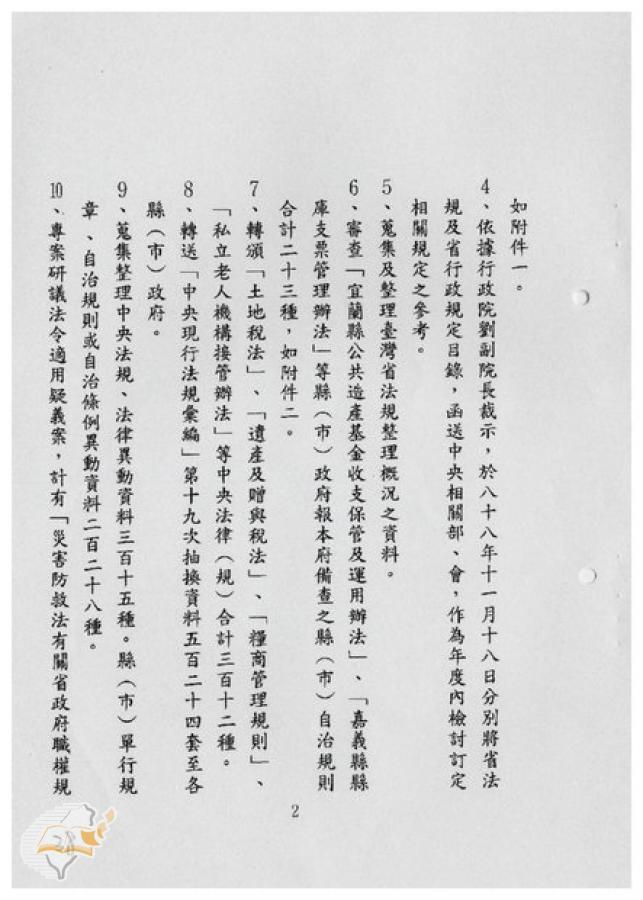 如附件一。
4、依據行政院劉副院長裁示，於八十八年十一月十八日分別將省法
規及省行政規定目錄，函送中央相關部、會，作為年度內檢討訂定
相關規定之參考。
5、蒐集及整理臺灣省法規整理概況之資料。
6、審查「宜蘭縣公共造產基金收支保管及運用辦法」、「嘉義縣縣
庫支票管理辦法」等縣（市）政府報本府備查之縣（市）自治規則
合計二十三種，如附件二。
7、轉頒「土地稅法」、「遺產及贈與稅法」、「糧商管理規則」、
「私立老人機構接管辦法」等中央法律（規）合計三百十二種。
8、轉送「中央現行法規彙編」第十九次抽換資料五百二十四套至各
縣（市）政府。
9、蒐集整理中央法規、法律異動資料三百十五種。縣（市）單行規
章、自治規則或自治條例異動資料二百二十八種。
10、專案研議法令適用疑義案，計有「災害防救法有關省政府職權規
2